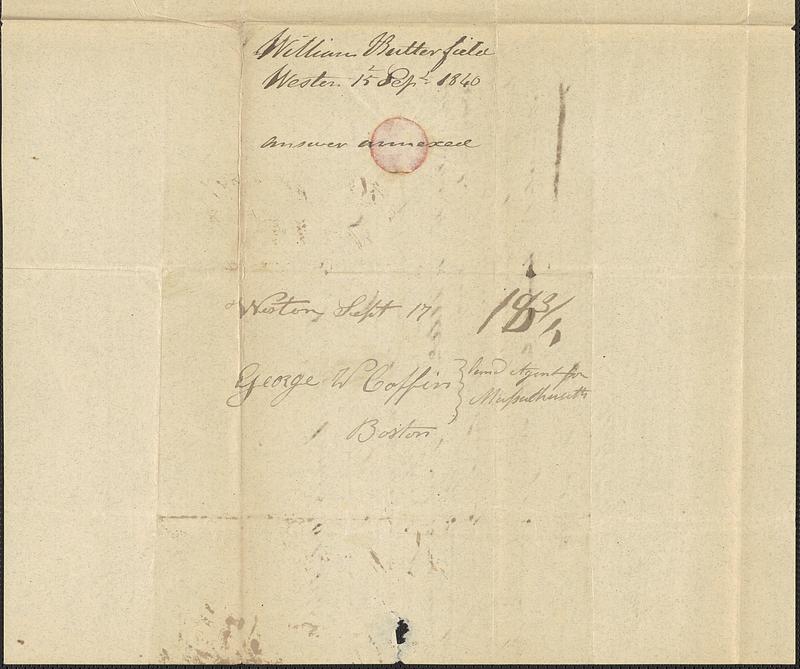 William Butterfield
Weston 15 Sept 1840
answer annexed
Weston Sept 17
18 3/4
George W Coffin } Land Agent for
Massachusetts
Boston